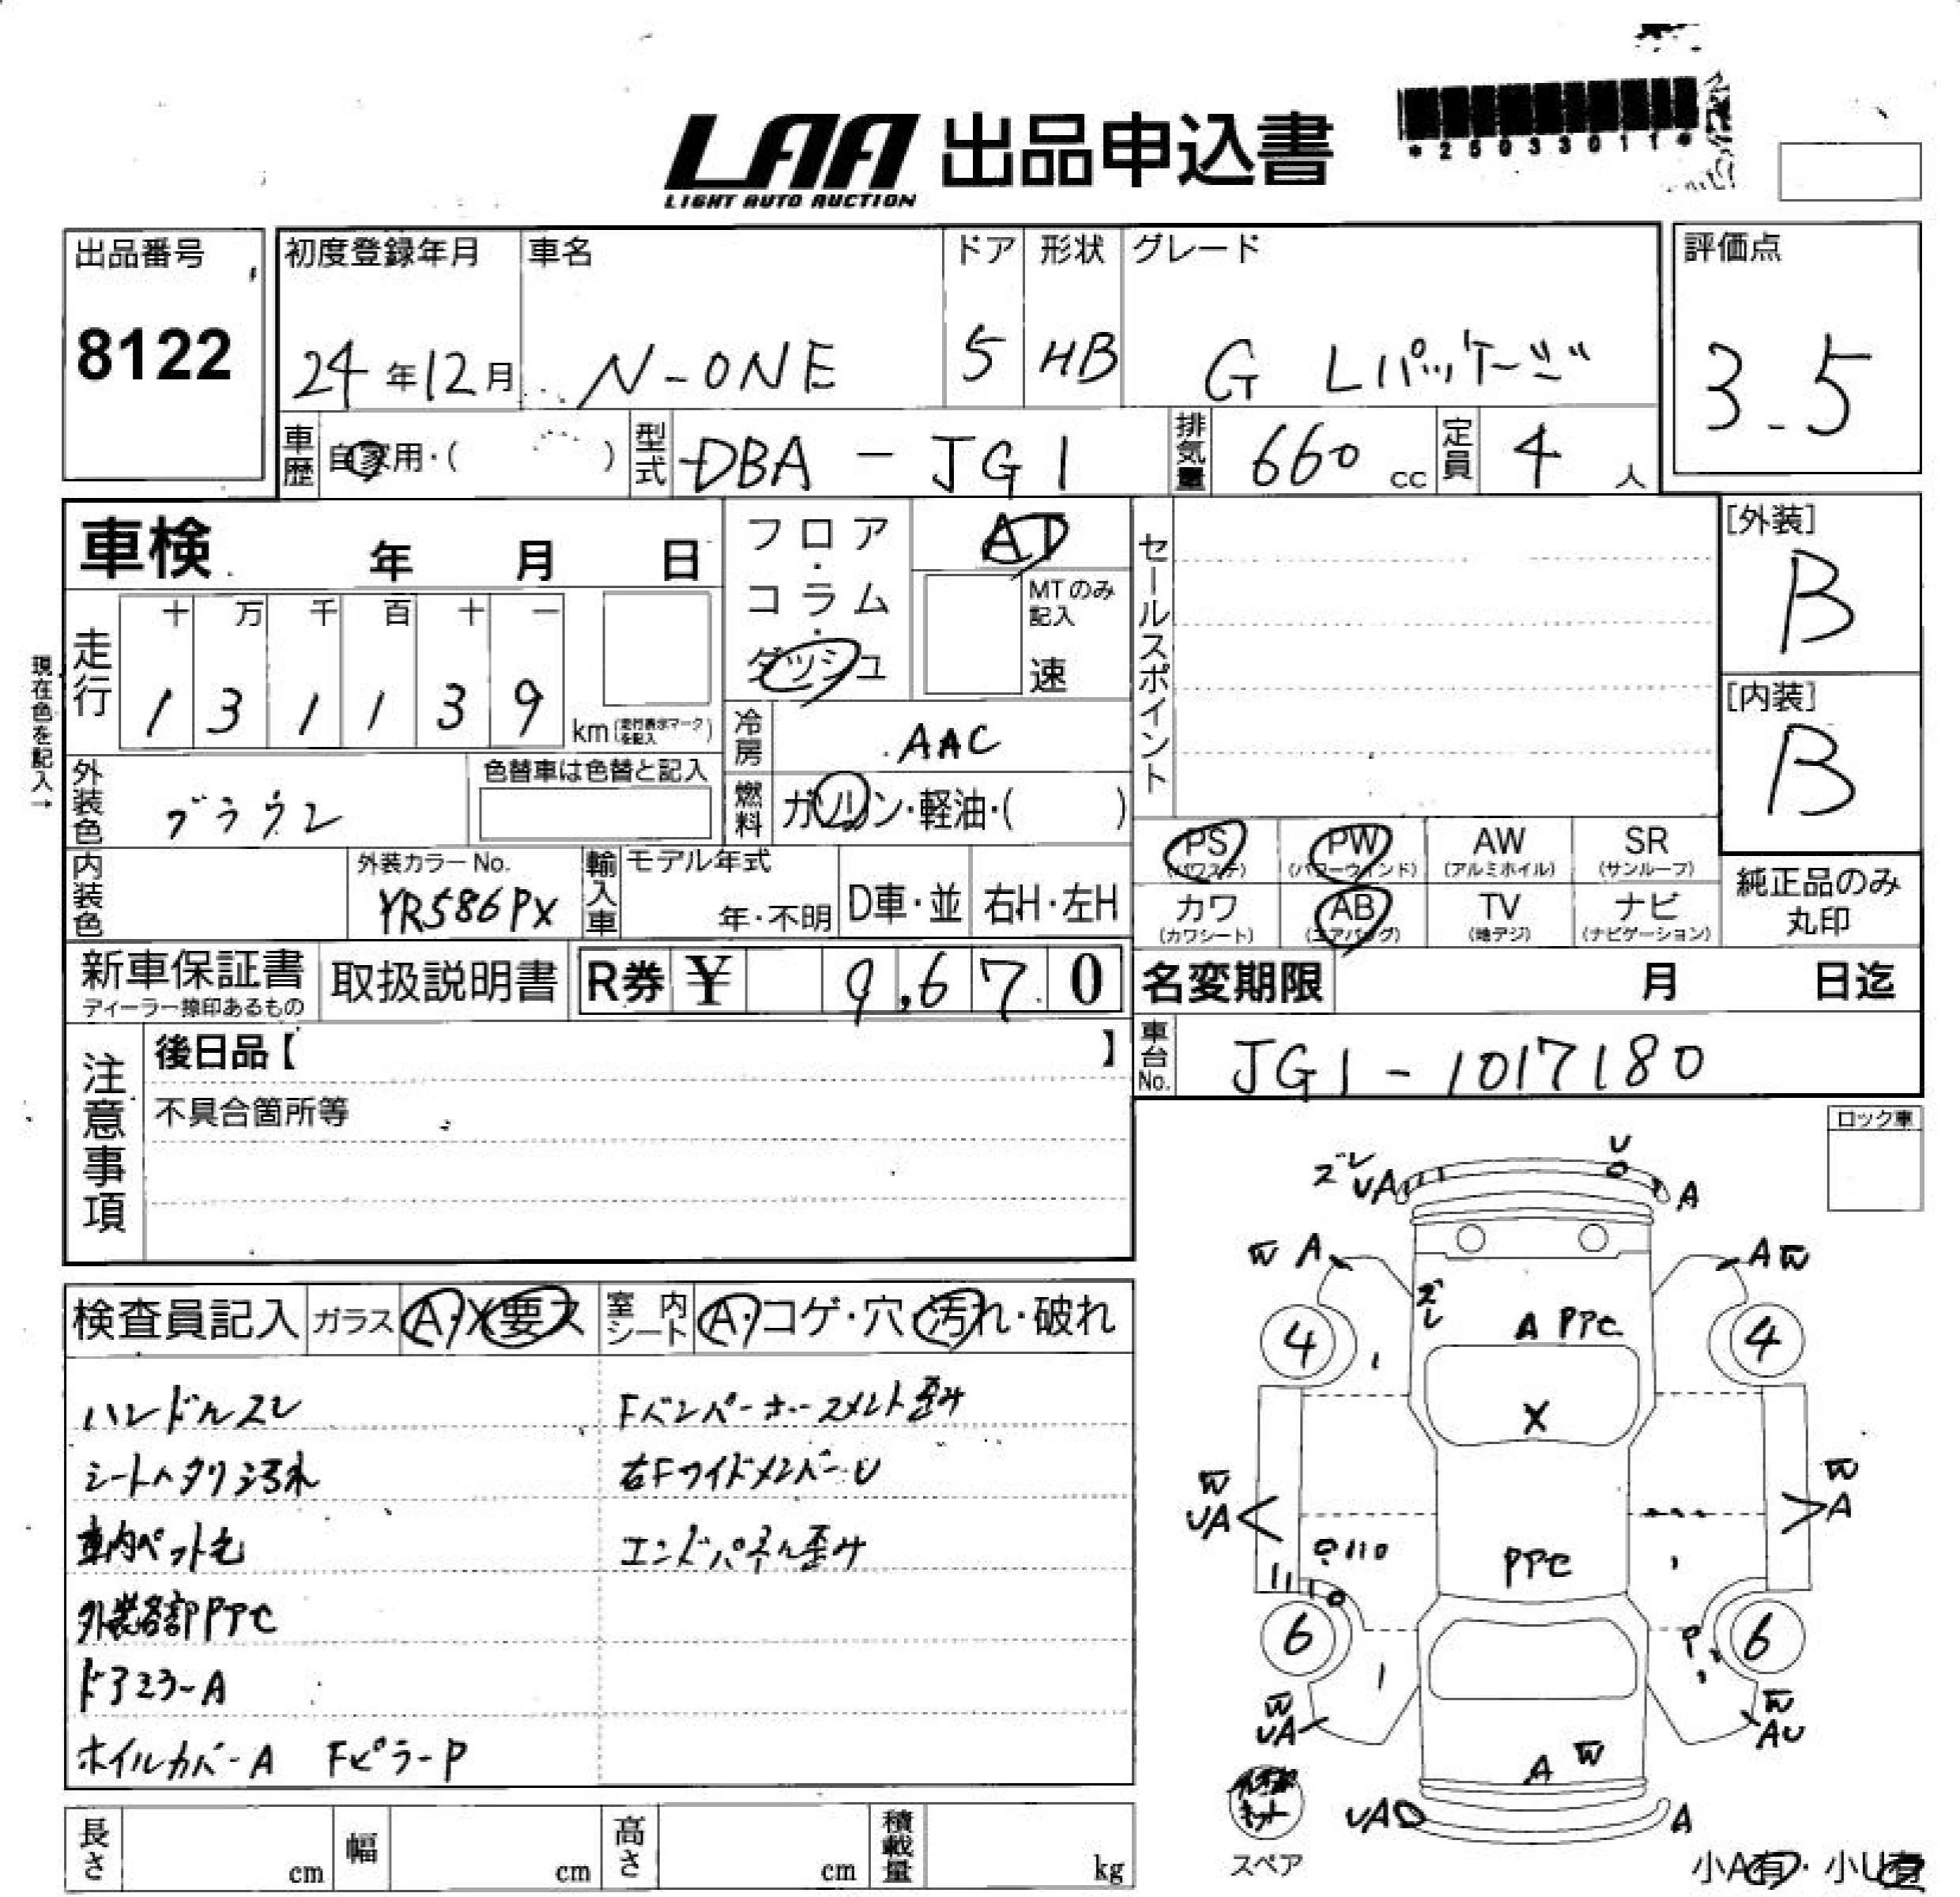 LAA 出品申込書
LIGHT AUTO AUCTION
*25033011*
出品番号
8122
初度登録年月
24年12月
車名
N-ONE
ドア
5
形状
HB
グレード
G Lパッケージ
評価点
3.5
車歴
自家用・( )
型式
DBA-JG1
排気量
660 cc
定員
4 人
車検 年 月 日
フロア・コラム・ダッシュ
AT
MTのみ記入
速
セールスポイント
[外装]
B
[内装]
B
現在色を記入→
走行
十 万 千 百 十 一
1 3 1 1 3 9
km (走行表示マークを記入)
冷房
AAC
燃料
ガソリン・軽油・( )
外装色
ブラウン
色替車は色替と記入
内装色
外装カラーNo.
YR586PX
輸入車
モデル年式
年・不明
D車・並
右H・左H
PS (パワステ)
PW (パワーウインド)
AW (アルミホイル)
SR (サンルーフ)
カワ (カワシート)
AB (エアバッグ)
TV (地デジ)
ナビ (ナビゲーション)
純正品のみ丸印
新車保証書
ディーラー捺印あるもの
取扱説明書
R券 ¥ 9,670
名変期限 月 日迄
車台No.
JG1-1017180
注意事項
後日品【 】
不具合箇所等
ロック車
検査員記入
ガラス
A・X要ス
室内シート
A・コゲ・穴・汚れ・破れ
ハンドルスレ
シートヘタリ汚れ
車内ペット毛
外装各部PPC
ドアミラーA
ホイルカバーA FピラーP
Fバンパーホースメント歪み
右FサイドメンバーU
エンドパネル歪み
ズレ
UA
U
A
W A
A W
ズレ
A PPC
4
4
X
W
UA
W
A
PPC
6
6
P
W
UA
W
AU
A W
キット
スペア
UA
A
小A有・小U有
長さ cm
幅 cm
高さ cm
積載量 kg